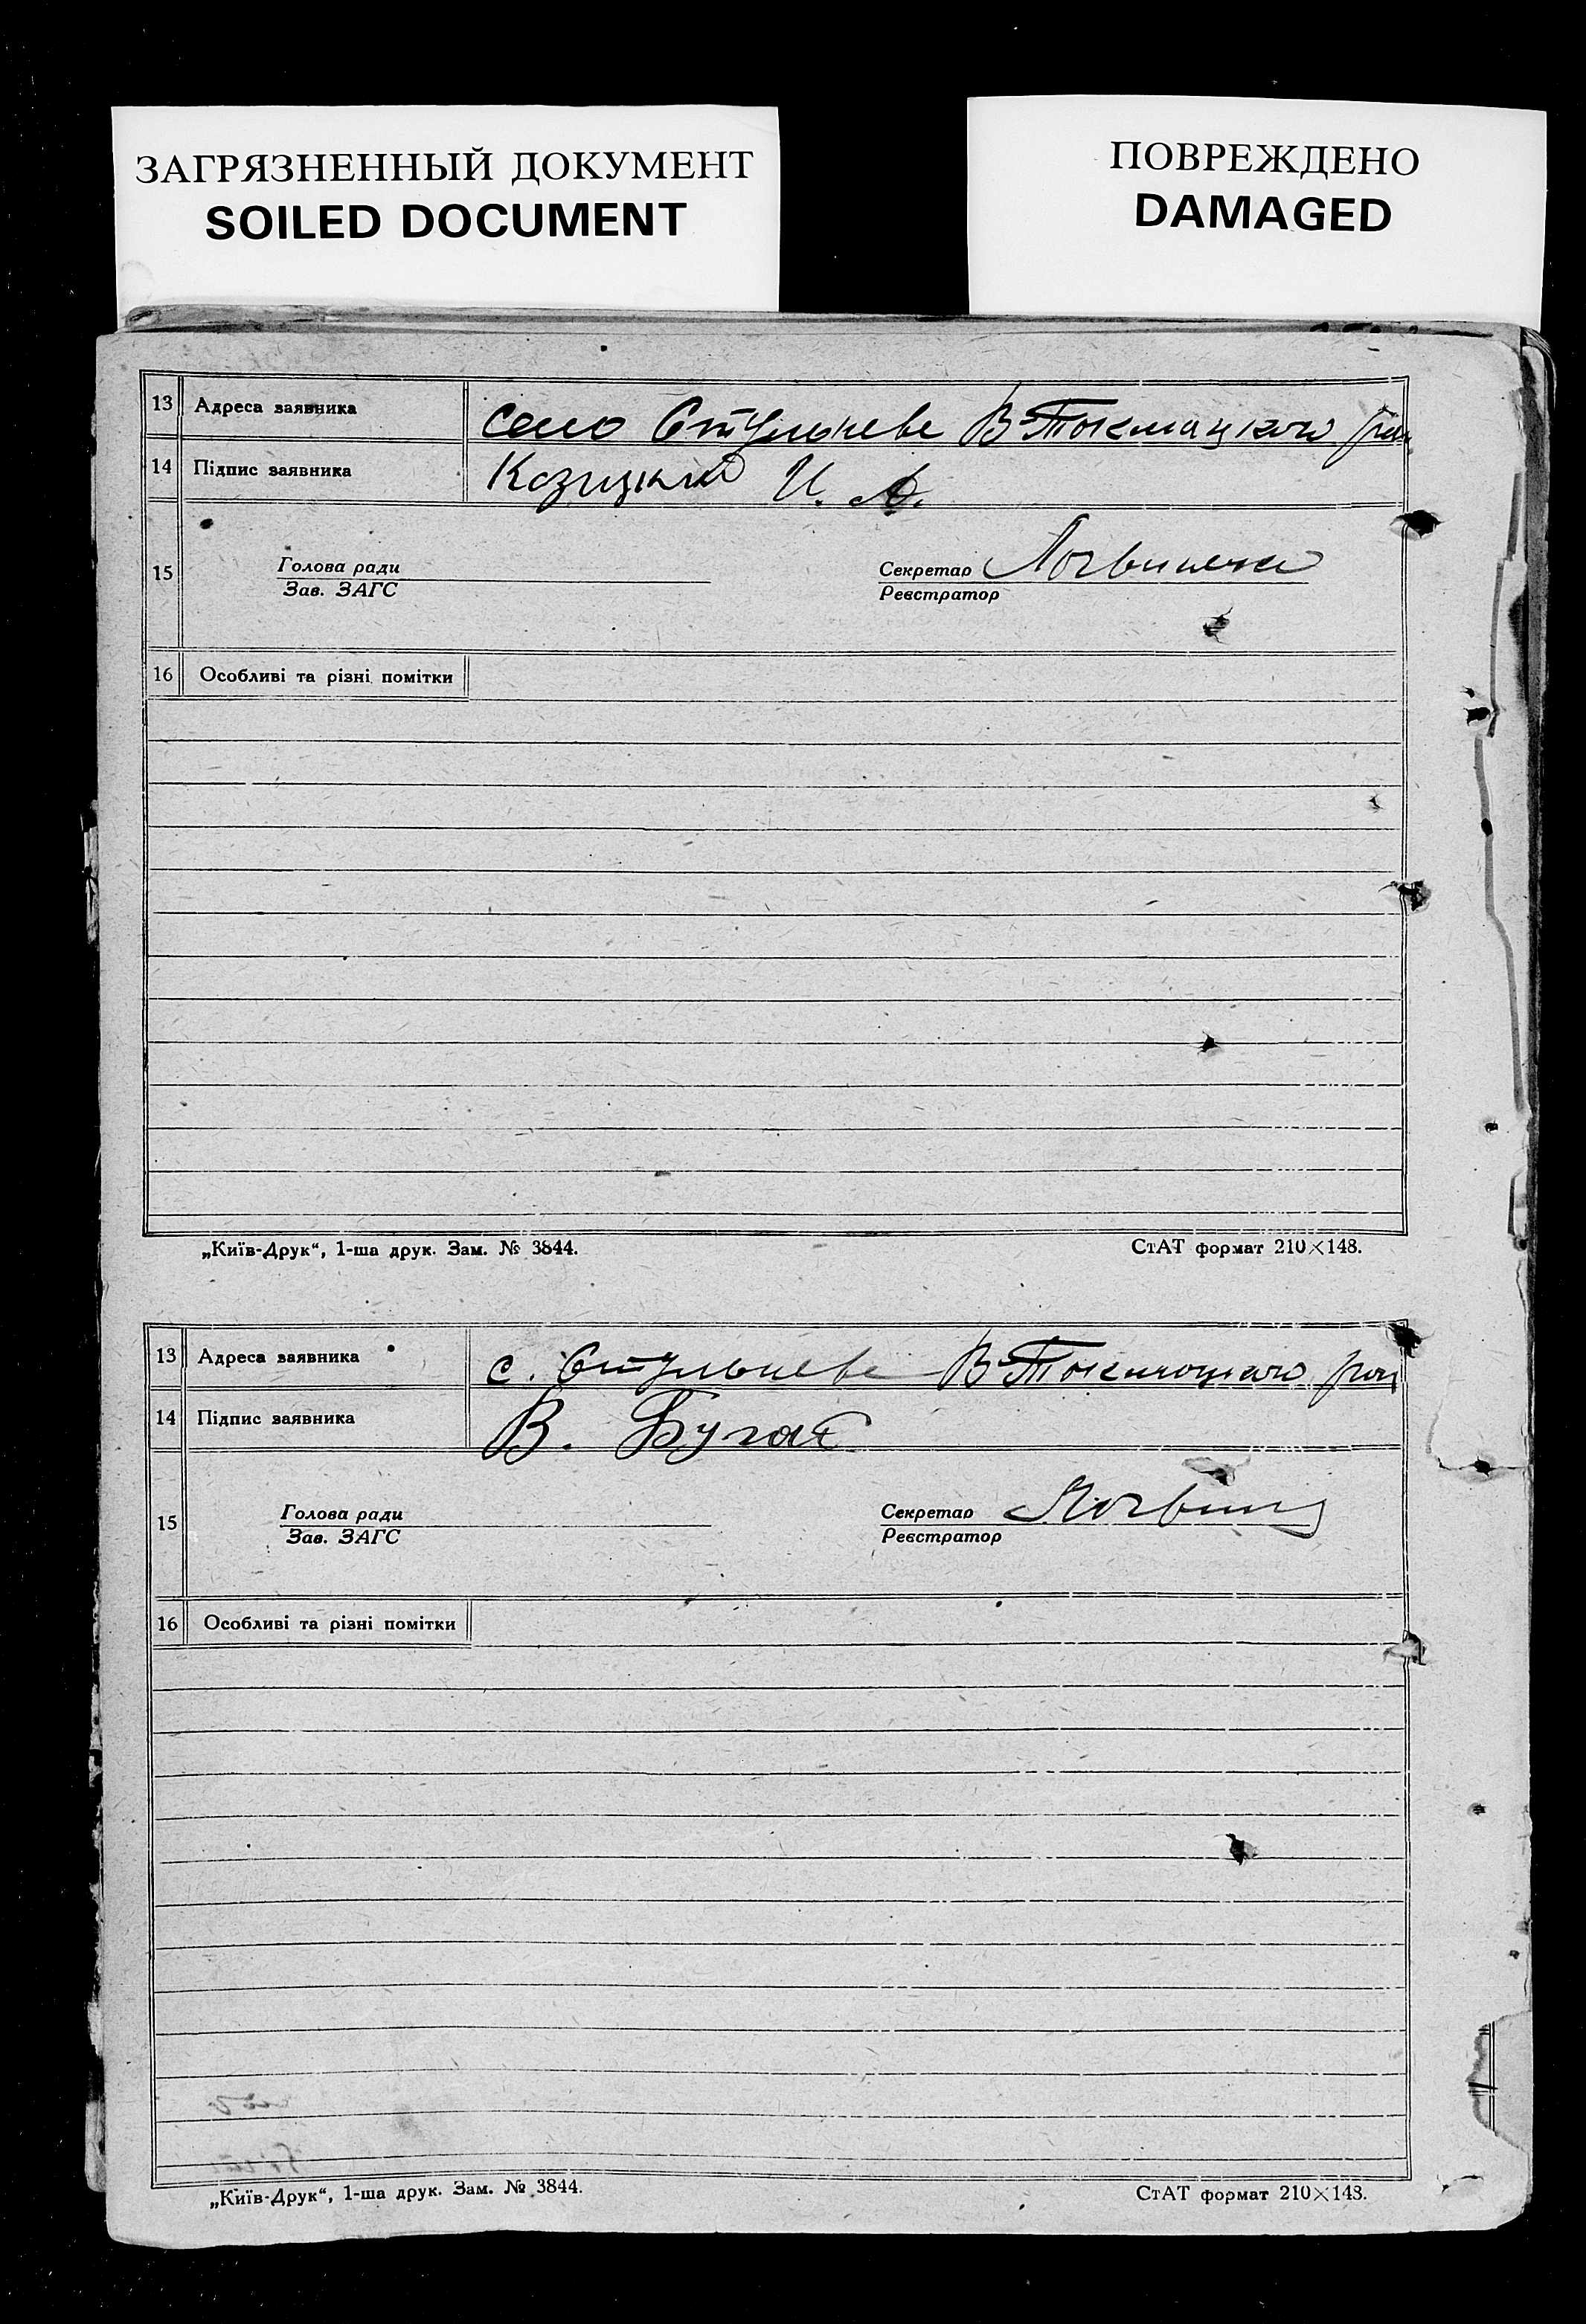 ЗАГРЯЗНЕННЫЙ ДОКУМЕНТ
SOILED DOCUMENT
ПОВРЕЖДЕНО
DAMAGED
13 Адреса заявника село Стульневе В-Токмацкого рай
14 Підпис заявника Козицкий И. А.
15 Голова ради
Зав. ЗАГС
Секретар
Реєстратор
16 Особливі та різні помітки
„Київ-Друк“, 1-ша друк. Зам. № 3844.
СтАТ формат 210×148.
13 Адреса заявника с. Стульневе В-Токмацкого рай
14 Підпис заявника В. Бугай
15 Голова ради
Зав. ЗАГС
Секретар
Реєстратор
16 Особливі та різні помітки
„Київ-Друк“, 1-ша друк. Зам. № 3844.
СтАТ формат 210×148.